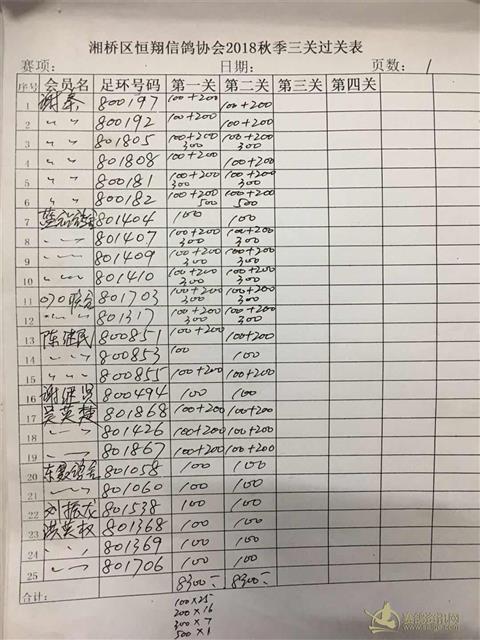 湘桥区恒翔信鸽协会2018秋季三关过关表
赛项: 日期: 页数: 1
序号 会员名 足环号码 第一关 第二关 第三关 第四关
1 谢泰 800197 100+200 100+200
2 〃 〃 800192 100+200 100+200
3 〃 〃 801805 100+200 300 100+200 300
4 〃 〃 801808 100+200 100+200
5 〃 〃 800181 100+200 300 100+200 300
6 〃 〃 800182 100+200 500 100+200 500
7 801404 100 100
8 〃 〃 801407 100+200 300 100+200 300
9 〃 〃 801409 100+200 300 100+200 300
10 〃 〃 801410 100+200 300 100+200 300
11 070联合 801703 100+200 300 100+200 300
12 〃 〃 801317 100+200 300 100+200 300
13 陈建民 800851 100+200 100+200
14 〃 〃 800853 100 100
15 〃 〃 800855 100+200 100+200
16 谢继贤 800494 100 100
17 吴英楚 801868 100+200 100+200
18 〃 801426 100+200 100+200
19 〃 801867 100+200 100+200
20 801058 100 100
21 〃 801060 100 100
22 刘振龙 801538 100 100
23 洪英权 801368 100 100
24 〃 〃 801369 100 100
25 〃 801706 100 100
合计: 8300 8300
100×25
200×16
300×7
500×1